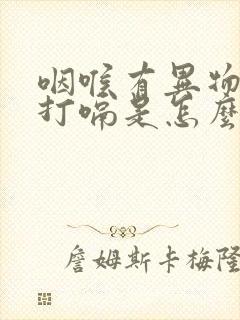 咽喉有異物
打嗝是怎麼
詹姆斯卡梅隆